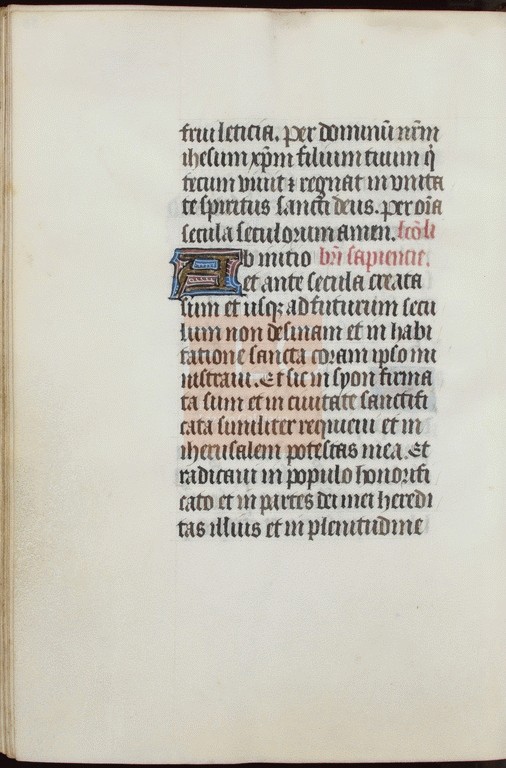 frui leticia. Per dominū nr̄m
ihesum xp̄m filium tuum q̇
tecum viuit ⁊ regnat in vnita
te spiritus sancti deus. per oīa
secula seculorum amen. scd̄i
Ab initio br̄i sapientie.
et ante secula creata
sum et usqꝫ ad futurum secu
lum non desinam et in habi
tatione sancta coram ipso mi
nistraui. Et sic in syon firma
ta sum et in ciuitate sanctifi
cata similiter requieui et in
iherusalem potestas mea. Et
radicaui in populo honorifi
cato et in partes dei mei heredi
tas illius et in plenitudine